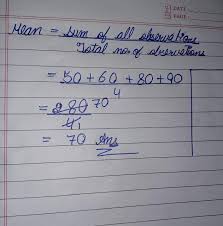 DATE
PAGE
Mean = Sum of all observation
Total no. of observations
= 50 + 60 + 80 + 90
4
= 280 70
4 1
= 70 Ans